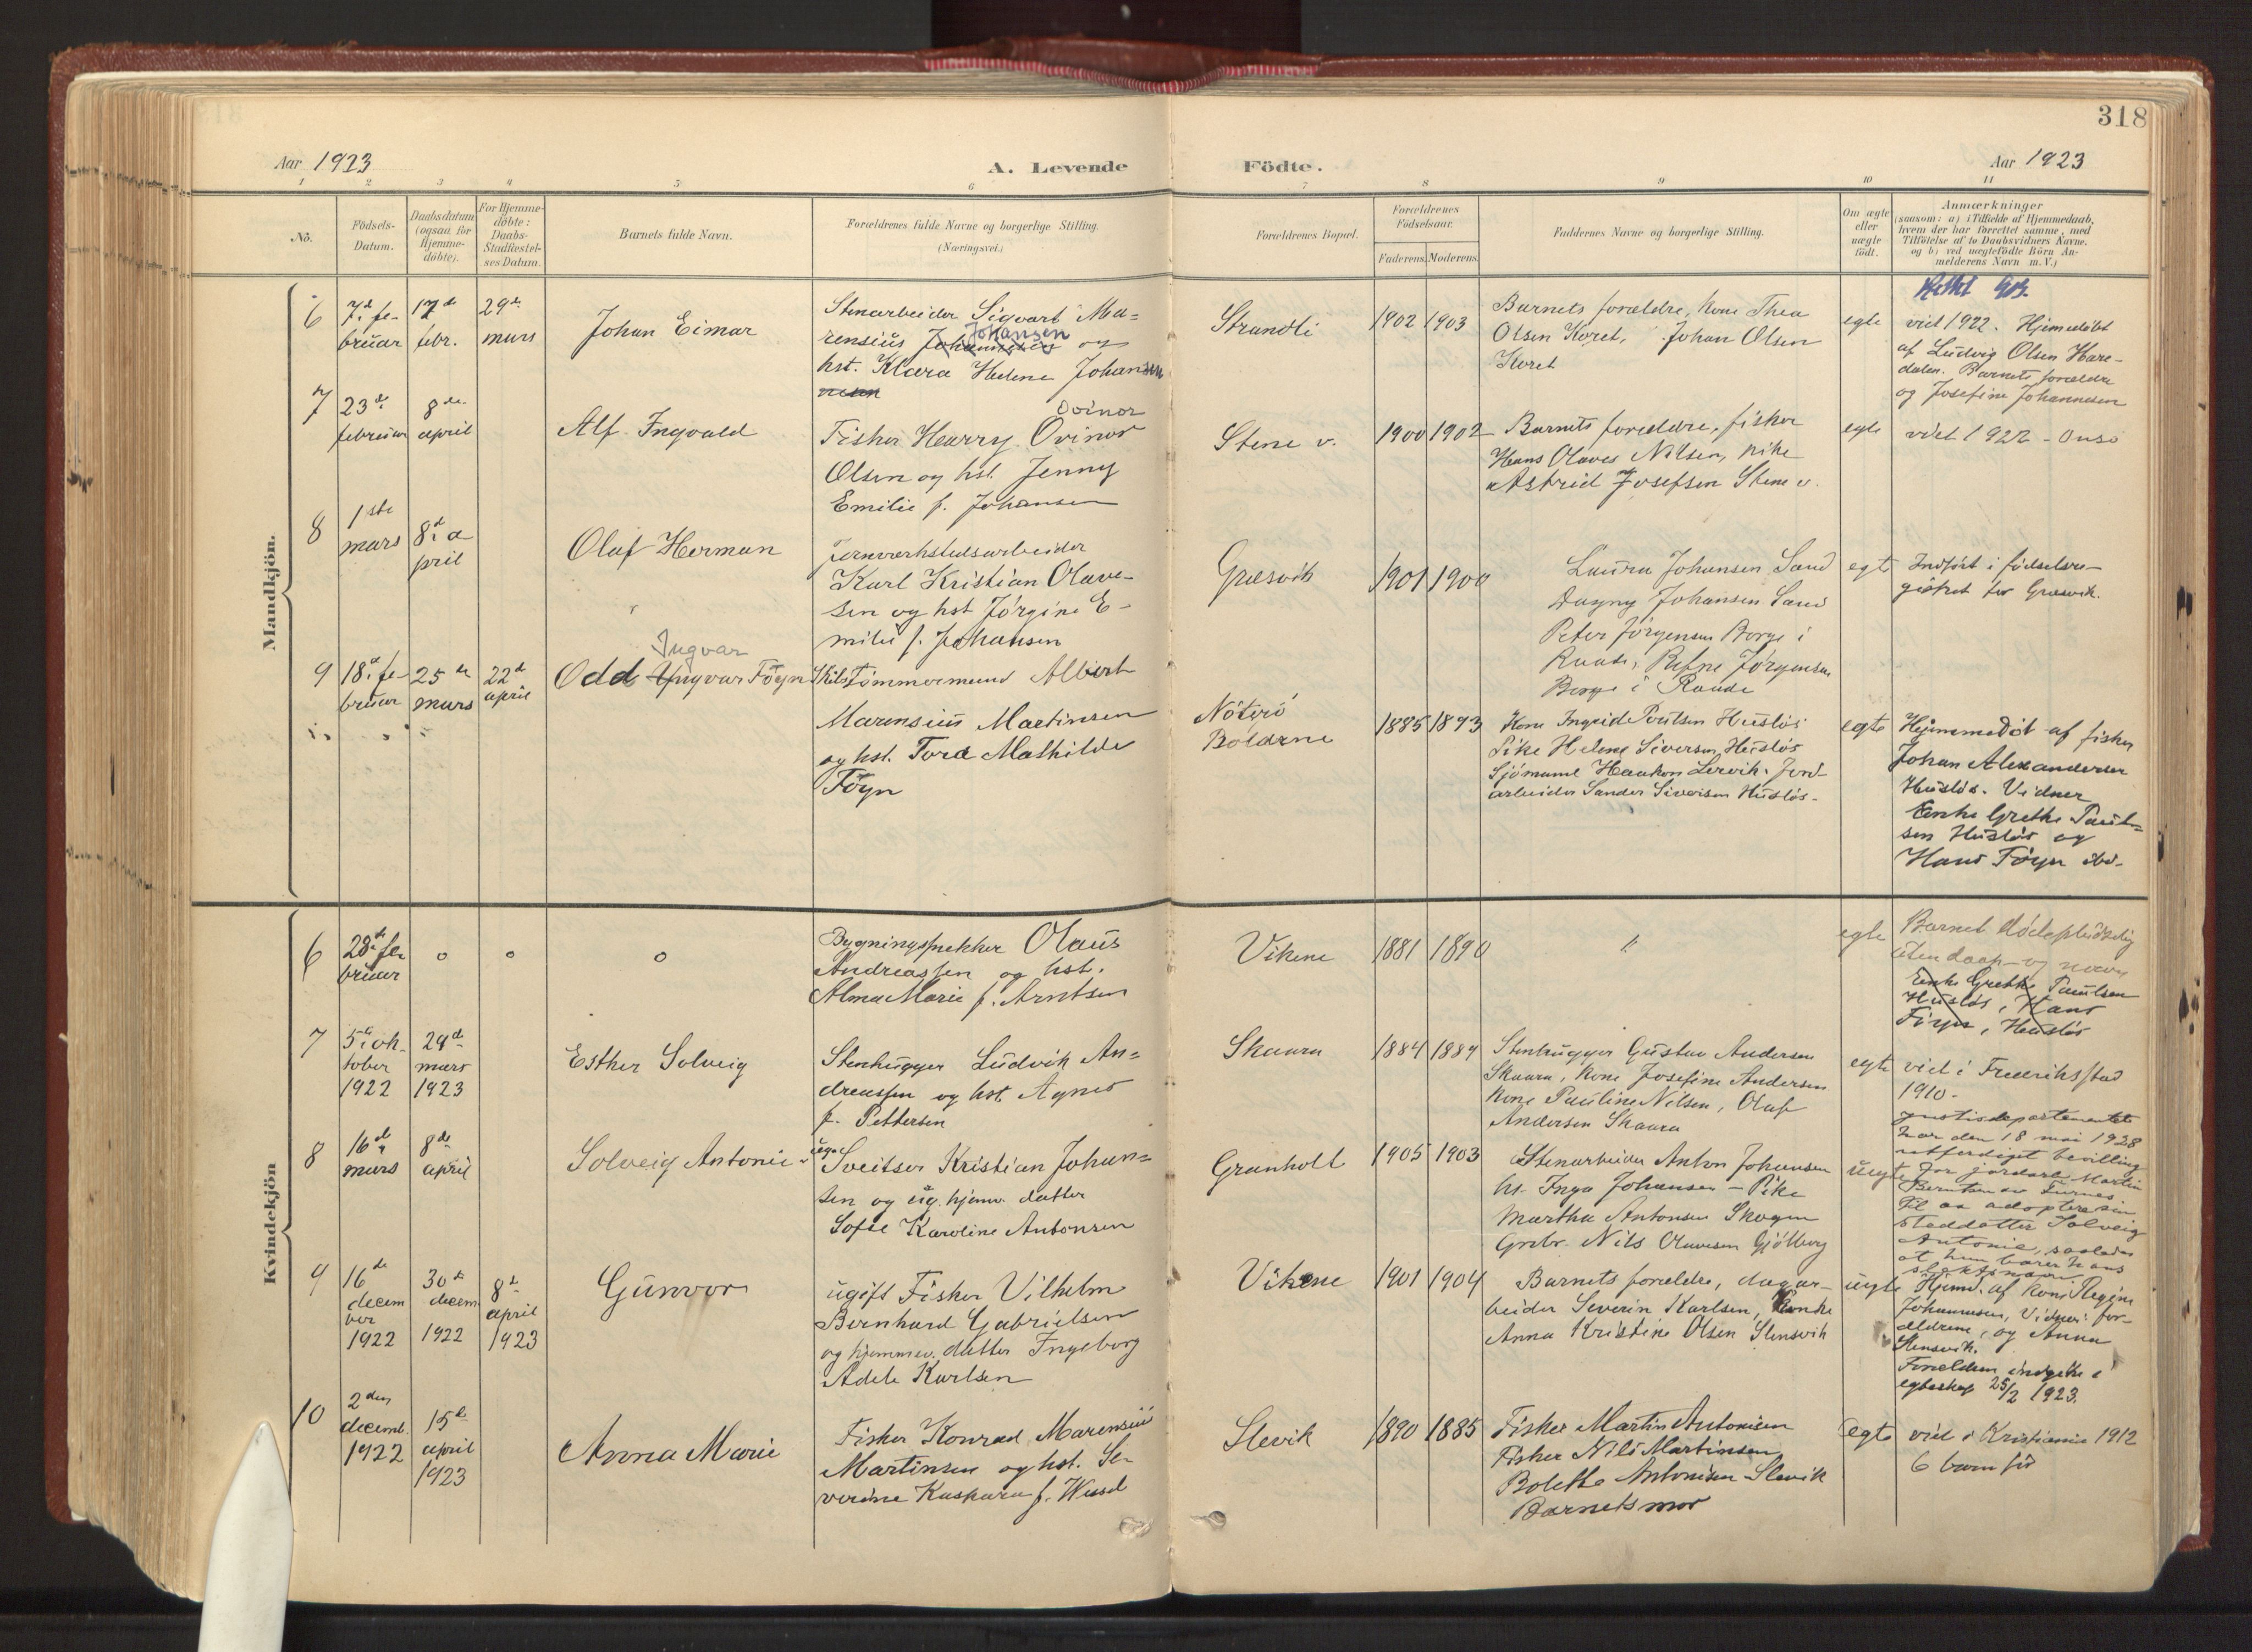 318
Aar 1923
A. Levende
Födte.
Aar 1923
1 2 3 4 5 6 7 8 9 10 11
No.
Födsels-
Datum.
Daabsdatum
(ogsaa for
Hjemme-
döbte).
For Hjemme-
döbte:
Daabs-
Stadfæstel-
ses Datum.
Barnets fulde Navn.
Forældrenes fulde Navne og borgerlige Stilling.
(Næringsvei.)
Forældrenes Bopæl.
Forældrenes
Födselsaar.
Faderens.
Moderens.
Faddernes Navne og borgerlige Stilling.
Om ægte
eller
uægte
födt.
Anmærkninger
(saasom: a) i Tilfælde af Hjemmedaab,
hvem der har forrettet samme, med
Tilföielse af to Daabsvidners Navne.
og b) ved uægtefödte Börn An-
melderens Navn m. V.)
Mandkjön.
6
7de fe-
bruar
17de
febr.
29de
mars
Johan Eimar
Stenarbeider Sigvart Ma-
rensius Johannesen og
Johansen
hst. Klara Helene Johansen
Strandli
1902
1903
Barnets forældre, kone Thea
Olsen Koret, Johan Olsen
Koret
egte
Rettet
viet 1922. Hjemedöbt
af Ludvig Olsen Hare-
dalen. Barnets forældre
og Josefine Johannesen
7
23de
februar
8de
april
Alf Ingvald
Ovinor
Fisker Harry Ovinor
Olsen og hst. Jenny
Emilie f. Johansen
Stene v.
1900
1902
Barnets foreldre, fisker
Hans Olaves Nilsen, pike
Astrid Josefsen Stene v.
egte
viet 1922 - Onsö
8
1ste
mars
8de a
pril
Olaf Herman
Jernverkstedsarbeider
Karl Kristian Olave-
sen og hst Jörgine E-
milie f. Johansen
Græsvik
1901
1900
Laura Johansen Sand
Dagny Johansen Sand
Peter Jörgensen Borge i
Raade, Refne Jörgensen
Borge i Raade
egte
Indfört i födselsre-
gistret for Græsvik.
9
18de fe-
bruar
25de
mars
22de
april
Ingvar
Odd Yngvar Föyn
Skibstömmermand Albert
Marensius Martinsen
og hst. Tora Mathilde
Föyn
Nöterö
Bolærne
1885
1893
Kone Ingrid Poulsen Huslös
Pike Helene Siversen, Huslös
Sjömand Haakon Lervik. Jord-
arbeider Sander Siversen Huslös.
egte
Hjemmedöbt af fisker
Johan Alexandersen
Huslös. Vidner
Enke Grethe Paul-
sen Huslös og
Hans Föyn ibd.
Kvindekjön
6
28de fe-
bruar
o
o
o
Bygningssnekker Olaus
Andreassen og hst.
Alma Marie f. Arntsen
Vikene
1881
1890
"
egte
Barnet döde pludselig
uten daap- og navn
Enke Grethe Paulsen
Huslös, Hans
Föyn, Huslös
7
5te ok-
tober
1922
29de
mars
1923
Esther Solveig
Stenhugger Ludvik An-
dreassen og hst. Agnes
f. Pettersen
Skaara
1884
1889
Stenhugger Gustav Andersen
Skaara, kone Josefine Andersen
kone Pauline Nilsen, Oluf
Andersen Skaara
egte
viet i Fredrikstad
1910.
8
16de
mars
8de
april
Solveig Antonie
ug.
Sveitser Kristian Johan-
sen og ug. hjemv. datter
Sofie Karoline Antonsen
Granholt
1905
1903
Stenarbeider Anton Johansen
hst. Inga Johansen - Pike
Martha Antonsen Skogen
Grbr. Nils Olavesen Gjölberg
uegte
Justisdepartementet
har den 18 mai 1928
utferdiget bevilling
for jordarb. Martin
Berntsen av Furnes
til aa adoptere sin
steddatter Solveig
Antonie, saaledes
at hun bærer hans
slektsnavn
9
16de
decem
ber
1922
30te
decem
1922
8de
april
1923
Gunvor
ugift Fisker Vilhelm
Bernhard Gabrielsen
og hjemmev. datter Ingeborg
Adele Karlsen
Vikene
1901
1904
Barnets forældre, dagar-
beider Severin Karlsen, Enke
Anna Kristine Olsen Stensvik
uegte
Hjemd. af kone Regine
Johannesen, Vidner: for-
ældrene, og Anna
Stensvik.
Forældrene indgikk i
egteskap 25/2 1923.
10
2den
decemb.
1922
15de
april
1923
Anna Marie
Fisker Konrad Marensius
Martinsen og hst. Se-
verine Kaspara f. Wessel
Slevik
1890
1885
Fisker Martin Antonisen
Fisker Nils Martinsen
Bolette Antonisen Slevik
Barnets mor
egte
viet i Kristiania 1912
6 barn för